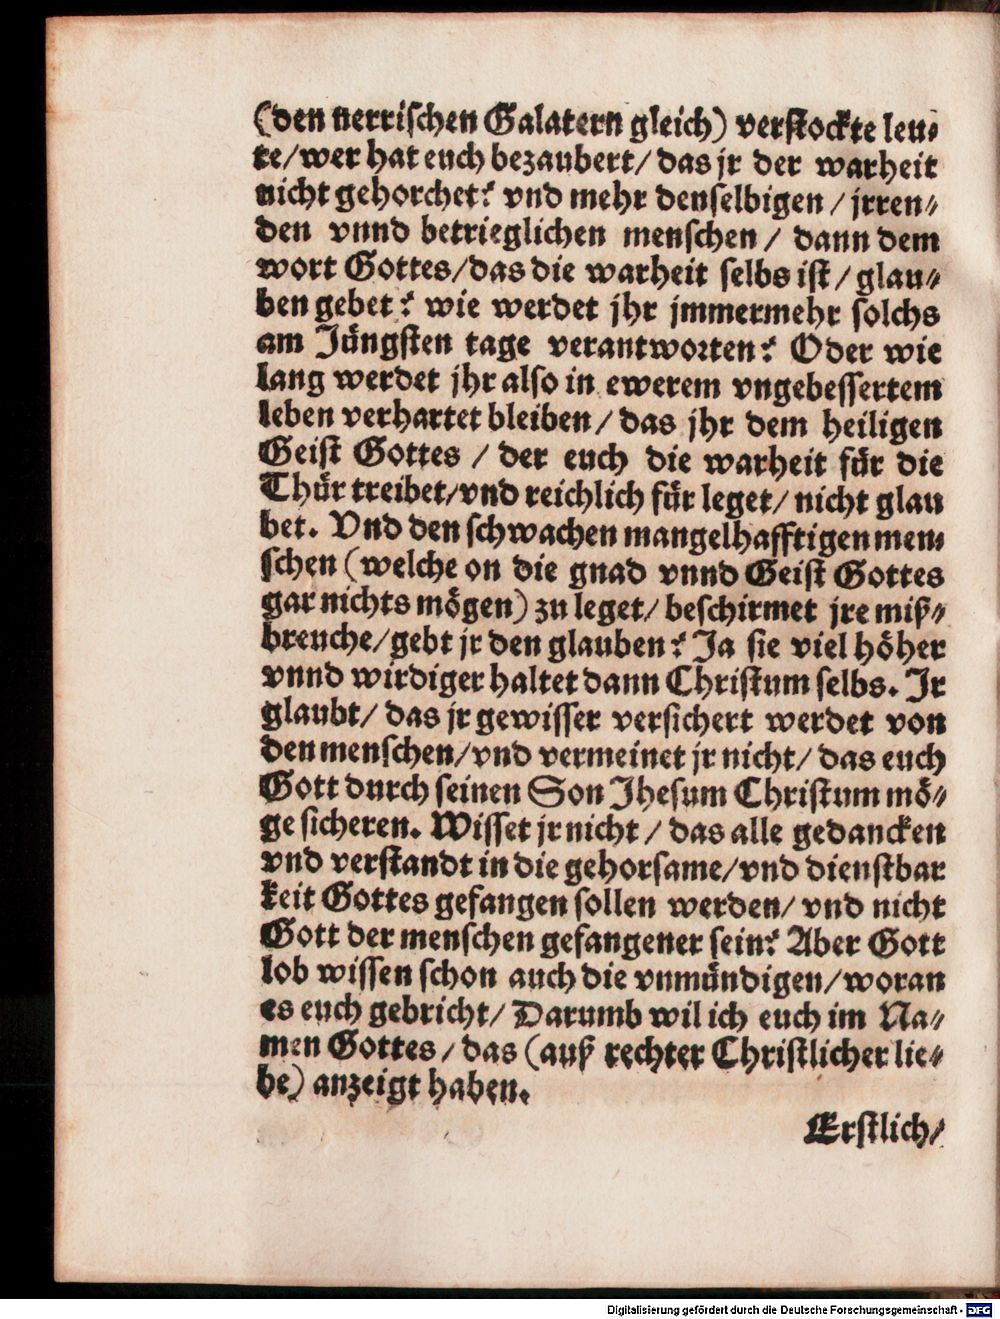 (den nerrischen Galatern gleich) verstockte leu⸗
te/wer hat euch bezaubert/ das jr der warheit
nicht gehorchet? vnd mehr denselbigen / jrren⸗
den vnnd betrieglichen menschen / dann dem
wort Gottes/das die warheit selbs ist / glau⸗
ben gebet? wie werdet jhr jmmermehr solchs
am Jüngsten tage verantworten? Oder wie
lang werdet jhr also in ewerem vngebessertem
leben verhartet bleiben/ das jhr dem heiligen
Geist Gottes / der euch die warheit für die
Thür treibet/vnd reichlich für leget/ nicht glau
bet. Vnd den schwachen mangelhafftigen men⸗
schen (welche on die gnad vnnd Geist Gottes
gar nichts mögen) zu leget/ beschirmet jre miß⸗
breuche/gebt jr den glauben? Ja sie viel höher
vnnd wirdiger haltet dann Christum selbs. Ir
glaubt/ das jr gewisser versichert werdet von
den menschen/vnd vermeinet jr nicht/ das euch
Gott durch seinen Son Jhesum Christum mö⸗
ge sicheren. Wisset jr nicht / das alle gedancken
vnd verstandt in die gehorsame/vnd dienstbar
keit Gottes gefangen sollen werden/ vnd nicht
Gott der menschen gefangener sein? Aber Gott
lob wissen schon auch die vnmündigen/woran
es euch gebricht/ Darumb wil ich euch im Na⸗
men Gottes / das (auß rechter Christlicher lie⸗
be) anzeigt haben.
Erstlich/
Digitalisierung gefördert durch die Deutsche Forschungsgemeinschaft - DFG